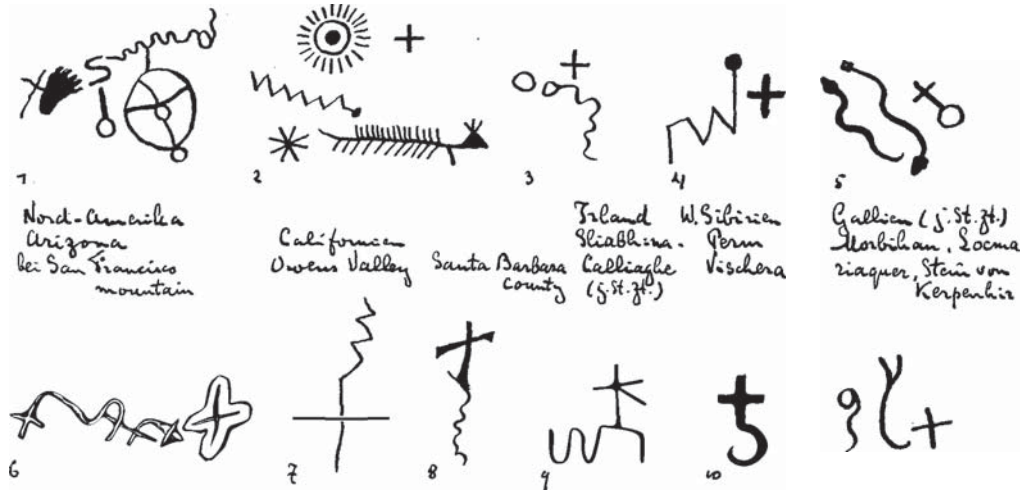 1
2
3
4
5
Nord-Amerika
Arizona
bei San Francisco
mountain
Californien
Owens Valley
Santa Barbara
County
Irland
Sliabhna-
Calliaghe
(j. St. Zt.)
W. Sibirien
Perm
Vischera
Gallien (j. St. Zt.)
Morbihan, Locma
riaquer, Stein von
Kerpenhir
6
7
8
9
10